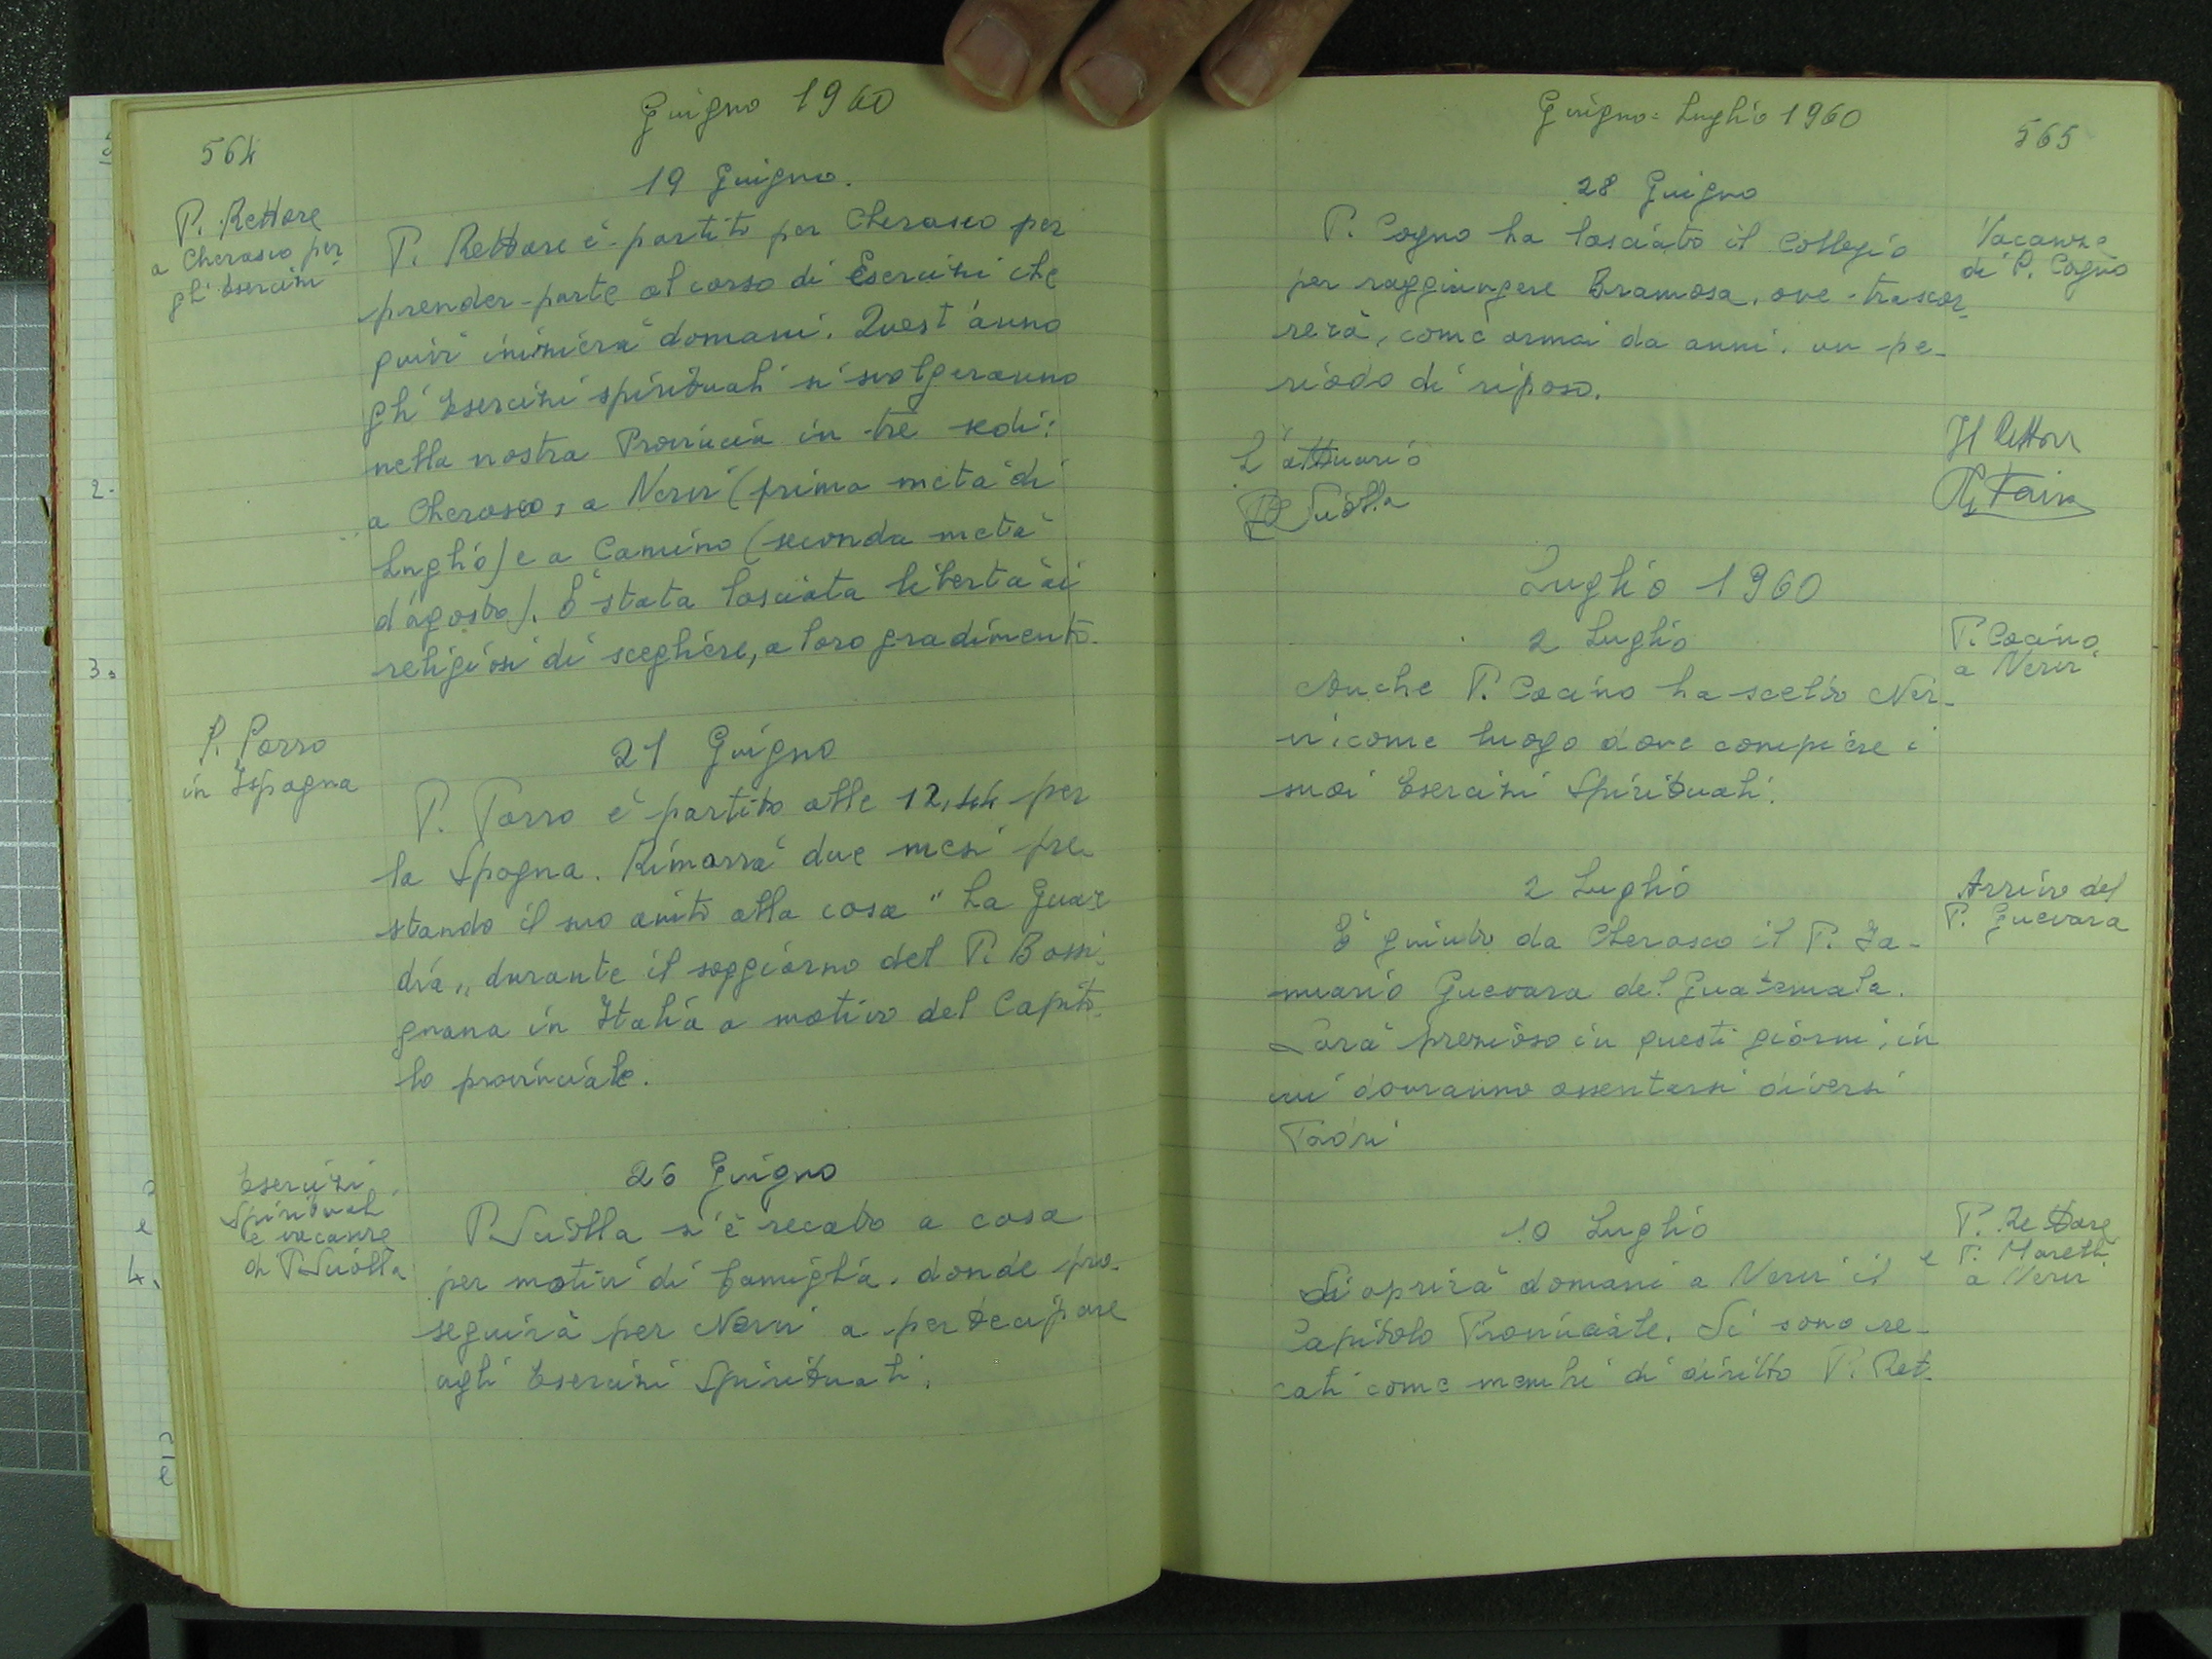 Giugno 1960
564
19 Giugno.
P. Rettore
a Cherasco per
gli Esercizi
P. Rettore è partito per Cherasco per
prender parte al corso di Esercizi che
quivi inizierà domani. Quest'anno
gli Esercizi spirituali si svolgeranno
nella nostra Provincia in tre sedi:
a Cherasco, a Nervi (prima metà di
Luglio) e a Camino (seconda metà
d'agosto). È stata lasciata libertà ai
religiosi di scegliere, a loro gradimento.
P. Porro
in Ispagna
21 Giugno
P. Porro è partito alle 12,44 per
la Spagna. Rimarrà due mesi pre
stando il suo aiuto alla casa "La Guar
dia" durante il soggiorno del P. Bossi
gnana in Italia a motivo del Capito
lo provinciale.
Esercizi
Spirituali
e vacanze
di P. Sciolla
26 Giugno
P. Sciolla s'è recato a casa
per motivi di famiglia, donde pro-
seguirà per Nervi a partecipare
agli Esercizi Spirituali.
Giugno = Luglio 1960
565
28 Giugno
P. Cogno ha lasciato il Collegio
per raggiungere Bramosa, ove trascor-
rerà, come ormai da anni, un pe-
riodo di riposo.
Vacanze
di P. Cogno
L'attuario
Sciolla
Il Rettore
Luglio 1960
2 Luglio
P. Cocino
a Nervi
Anche P. Cocino ha scelto Ner-
vi come luogo dove compiere i
suoi Esercizi Spirituali.
2 Luglio
Arrivo del
P. Guevara
È giunto da Cherasco il P. Ja-
nuario Guevara del Guatemala.
Sarà prezioso in questi giorni, in
cui dovranno assentarsi diversi
Padri
10 Luglio
P. Rettore
e P. Moretti
a Nervi
Si aprirà domani a Nervi il
Capitolo Provinciale. Si sono re-
cati come membri di diritto P. Ret-